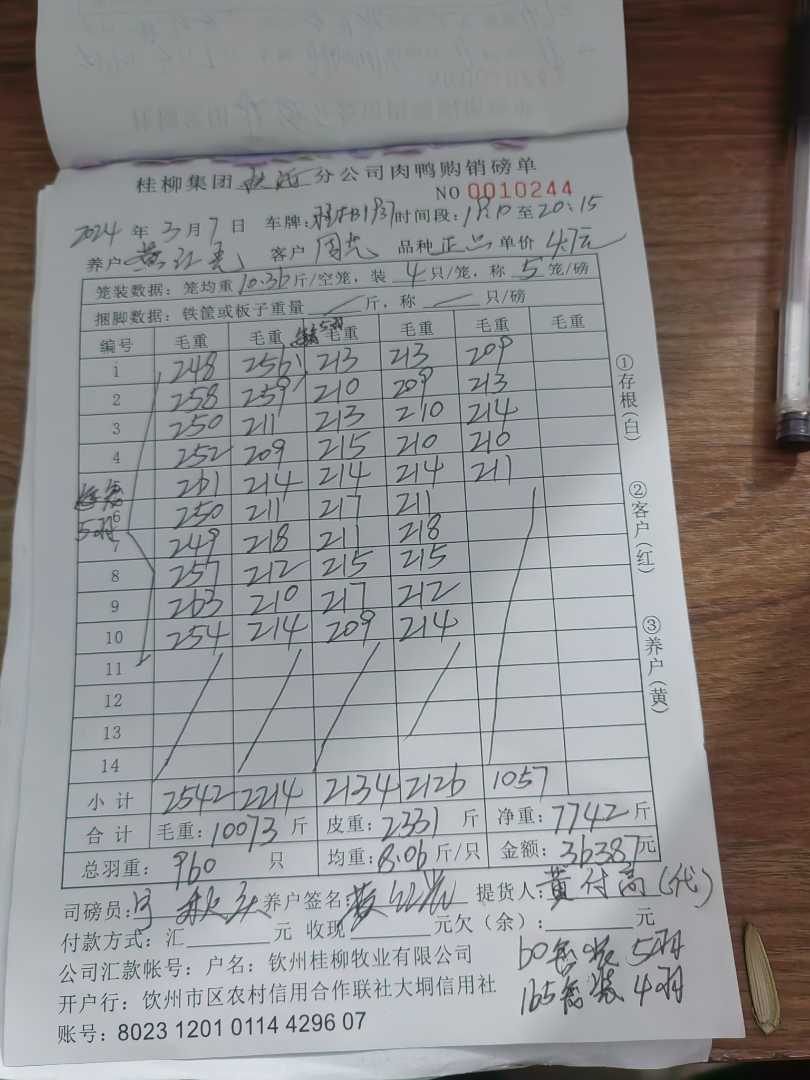 桂柳集团 分公司肉鸭购销磅单
NO 0010244
2024 年 3 月 7 日 车牌: 时间段: 至20:15
养户 黄红亮 客户 周光 品种 正品 单价 4.7元
笼装数据: 笼均重 10.36 斤/空笼, 装 4 只/笼, 称 5 笼/磅
捆脚数据: 铁筐或板子重量 / 斤, 称 — 只/磅
编号 毛重 毛重 毛重 毛重 毛重 毛重
1 248 256 213 213 209
2 258 259 210 209 213
3 250 211 213 210 214
4 252 209 215 210 210
5 261 214 214 214 211
6 250 211 217 211
7 249 218 211 218
8 257 212 215 215
9 263 210 217 212
10 254 214 209 214
11
12
13
14
5羽
小计 2542 2214 2134 2126 1057
合计 毛重: 10073 斤 皮重: 2331 斤 净重: 7742 斤
总羽重: 960 只 均重: 8.06 斤/只 金额: 36387 元
司磅员: 养户签名: 黄红亮 提货人: 黄付高(代)
付款方式: 汇 元 收现 元欠(余): 元
公司汇款帐号: 户名: 钦州桂柳牧业有限公司
开户行: 钦州市区农村信用合作联社大垌信用社
账号: 8023 1201 0114 4296 07
60笼装5羽
165笼装4羽
①存根(白)
②客户(红)
③养户(黄)